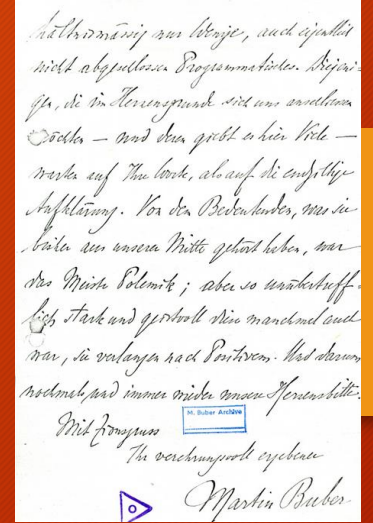 hältnismässig nur Wenige, auch eigentlich
nicht abgeschlossen Programmatisches. Diejeni-
gen, die im Herzensgrunde sich uns anschliessen
möchten — und deren giebt es hier Viele —
warten auf Ihr Wort, als auf die endgiltige
Aufklärung. Von dem Bedeutenden, was sie
bisher aus unserer Mitte gehört haben, war
das Meiste Polemik; aber so unübertreff-
lich stark und geistvoll diese manchmal auch
war, sie verlangen nach Positivem. Und darum
nochmals, und immer wieder unsere Herzensbitte.
M. Buber Archive
Mit Zionsgruss
Ihr verehrungsvoll ergebener
Martin Buber